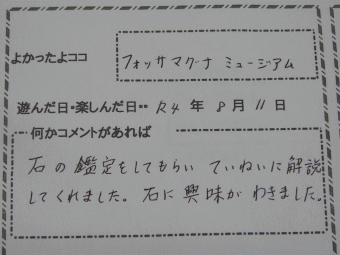 よかったよココ フォッサマグナ ミュージアム
遊んだ日・楽しんだ日・・ R4 年 8 月 11 日
何かコメントがあれば
石の鑑定をしてもらい ていねいに解説
してくれました。石に興味がわきました。